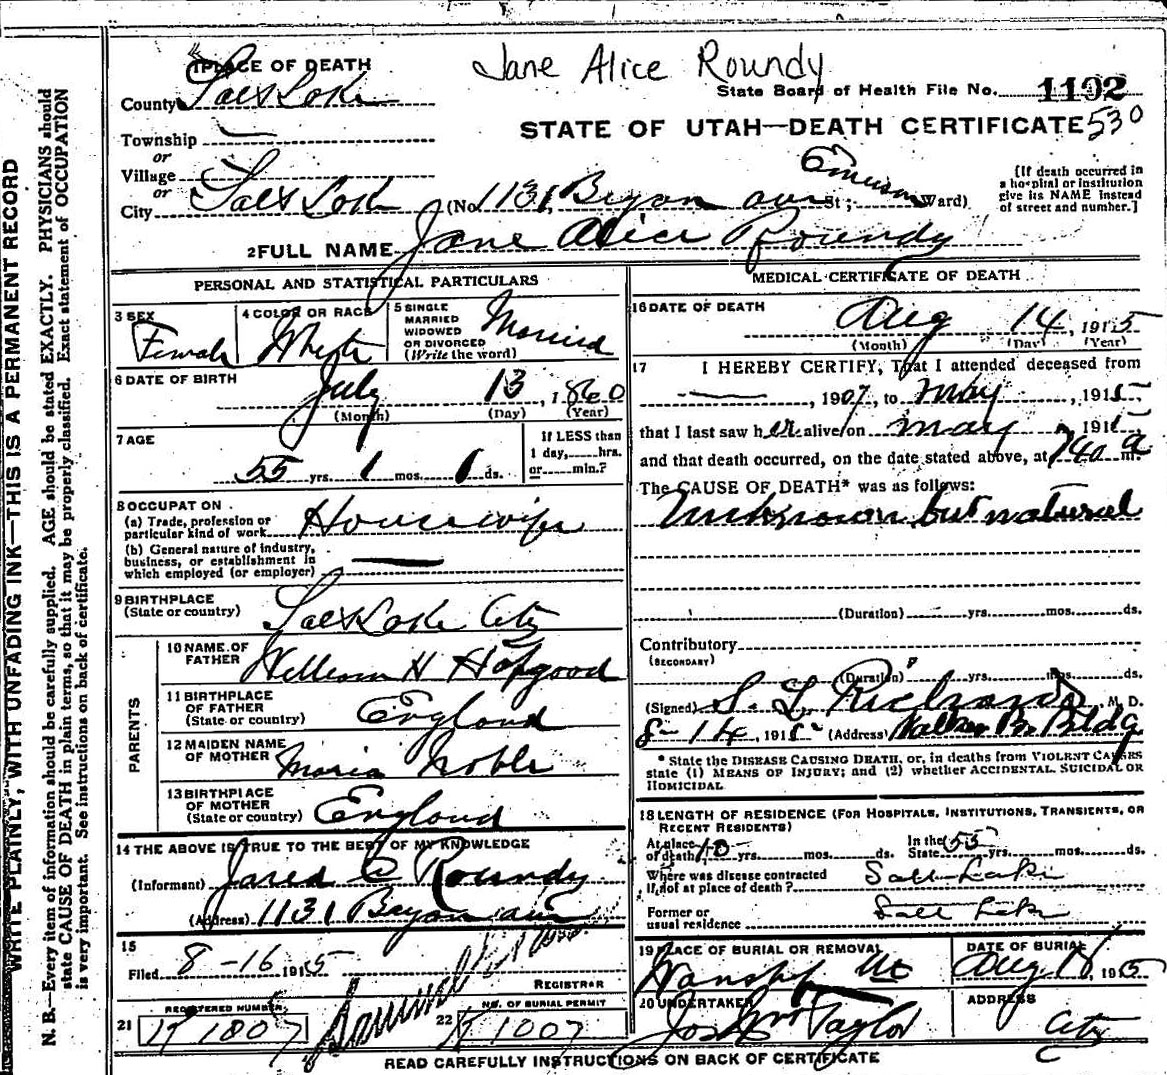 Jane Alice Roundy
1 PLACE OF DEATH
State Board of Health File No. 1192
County Salt Lake
STATE OF UTAH—DEATH CERTIFICATE 530
Township
or
Village
or
City Salt Lake (No. 1131 Bryan ave St; Emerson Ward)
[If death occurred in
a hospital or institution
give its NAME instead
of street and number.]
2 FULL NAME Jane Alice Roundy
PERSONAL AND STATISTICAL PARTICULARS
3 SEX
Female
4 COLOR OR RACE
White
5 SINGLE
MARRIED
WIDOWED
OR DIVORCED
(Write the word)
Married
6 DATE OF BIRTH
July 13, 1860
(Month) (Day) (Year)
7 AGE
55 yrs. 1 mos. 1 ds.
If LESS than
1 day, hrs.
or min.?
8 OCCUPATION
(a) Trade, profession or
particular kind of work Housewife
(b) General nature of industry,
business, or establishment in
which employed (or employer)
9 BIRTHPLACE
(State or country) Salt Lake City
PARENTS
10 NAME OF
FATHER William H Hopgood
11 BIRTHPLACE
OF FATHER
(State or country) England
12 MAIDEN NAME
OF MOTHER Maria Noble
13 BIRTHPLACE
OF MOTHER
(State or country) England
14 THE ABOVE IS TRUE TO THE BEST OF MY KNOWLEDGE
(Informant) Jared C Roundy
(Address) 1131 Bryan ave
15
Filed 8-16 1915
REGISTRAR
REGISTERED NUMBER
21
NO. OF BURIAL PERMIT
22
MEDICAL CERTIFICATE OF DEATH
16 DATE OF DEATH
Aug 14, 1915
(Month) (Day) (Year)
17 I HEREBY CERTIFY, That I attended deceased from
, 1907, to may, 1915,
that I last saw her alive on may 1915,
and that death occurred, on the date stated above, at 740 a m.
The CAUSE OF DEATH* was as follows:
Unknown but natural
(Duration) yrs. mos. ds.
Contributory
(SECONDARY)
(Duration) yrs. mos. ds.
(Signed) S. L Richards M. D.
8-14, 1915 (Address) Walker Bk Bldg
* State the DISEASE CAUSING DEATH, or, in deaths from VIOLENT CAUSES
state (1) MEANS OF INJURY; and (2) whether ACCIDENTAL SUICIDAL OR
HOMICIDAL
18 LENGTH OF RESIDENCE (FOR HOSPITALS, INSTITUTIONS, TRANSIENTS, OR
RECENT RESIDENTS)
At place
of death 10 yrs. mos. ds.
In the
State 55 yrs. mos. ds.
Where was disease contracted
if not at place of death? Salt Lake
Former or
usual residence Salt Lake
19 PLACE OF BURIAL OR REMOVAL
Wanship Ut
DATE OF BURIAL
Aug 1915
20 UNDERTAKER
Jos Wm Taylor
ADDRESS
City
READ CAREFULLY INSTRUCTIONS ON BACK OF CERTIFICATE
WRITE PLAINLY, WITH UNFADING INK—THIS IS A PERMANENT RECORD
N. B.—Every item of information should be carefully supplied. AGE should be stated EXACTLY. PHYSICIANS should
state CAUSE OF DEATH in plain terms, so that it may be properly classified. Exact statement of OCCUPATION
is very important. See instructions on back of certificate.